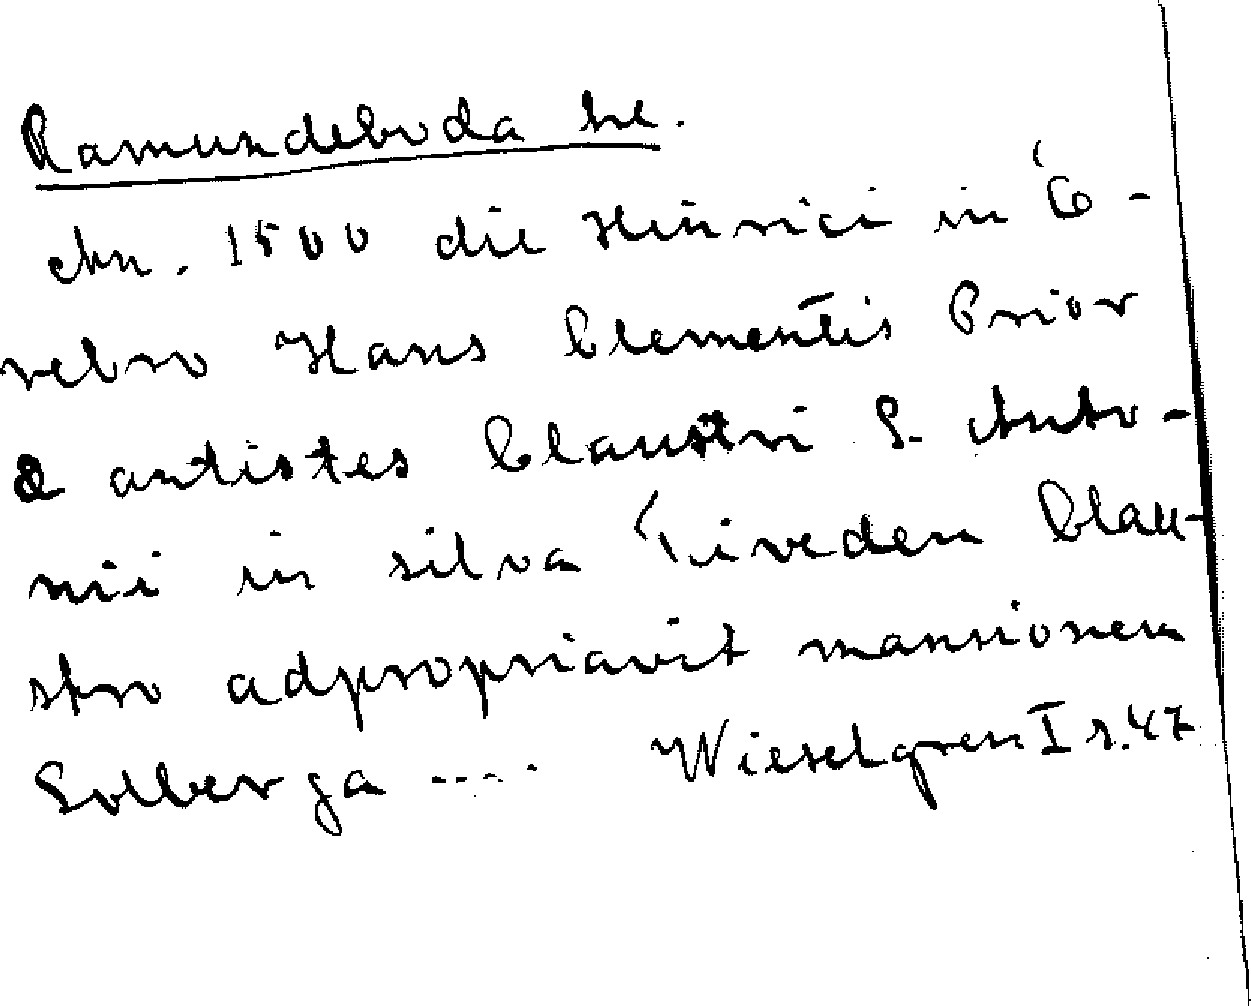 Ramundeboda hd.
An. 1500 die Hinrici in Ö-
rebro Hans Clementis Prior
& antistes Claustri S. Anto-
nii in silva Tiveden Clau-
stro adpropriavit mansionem
Solberga .... Wieselgren I s. 47